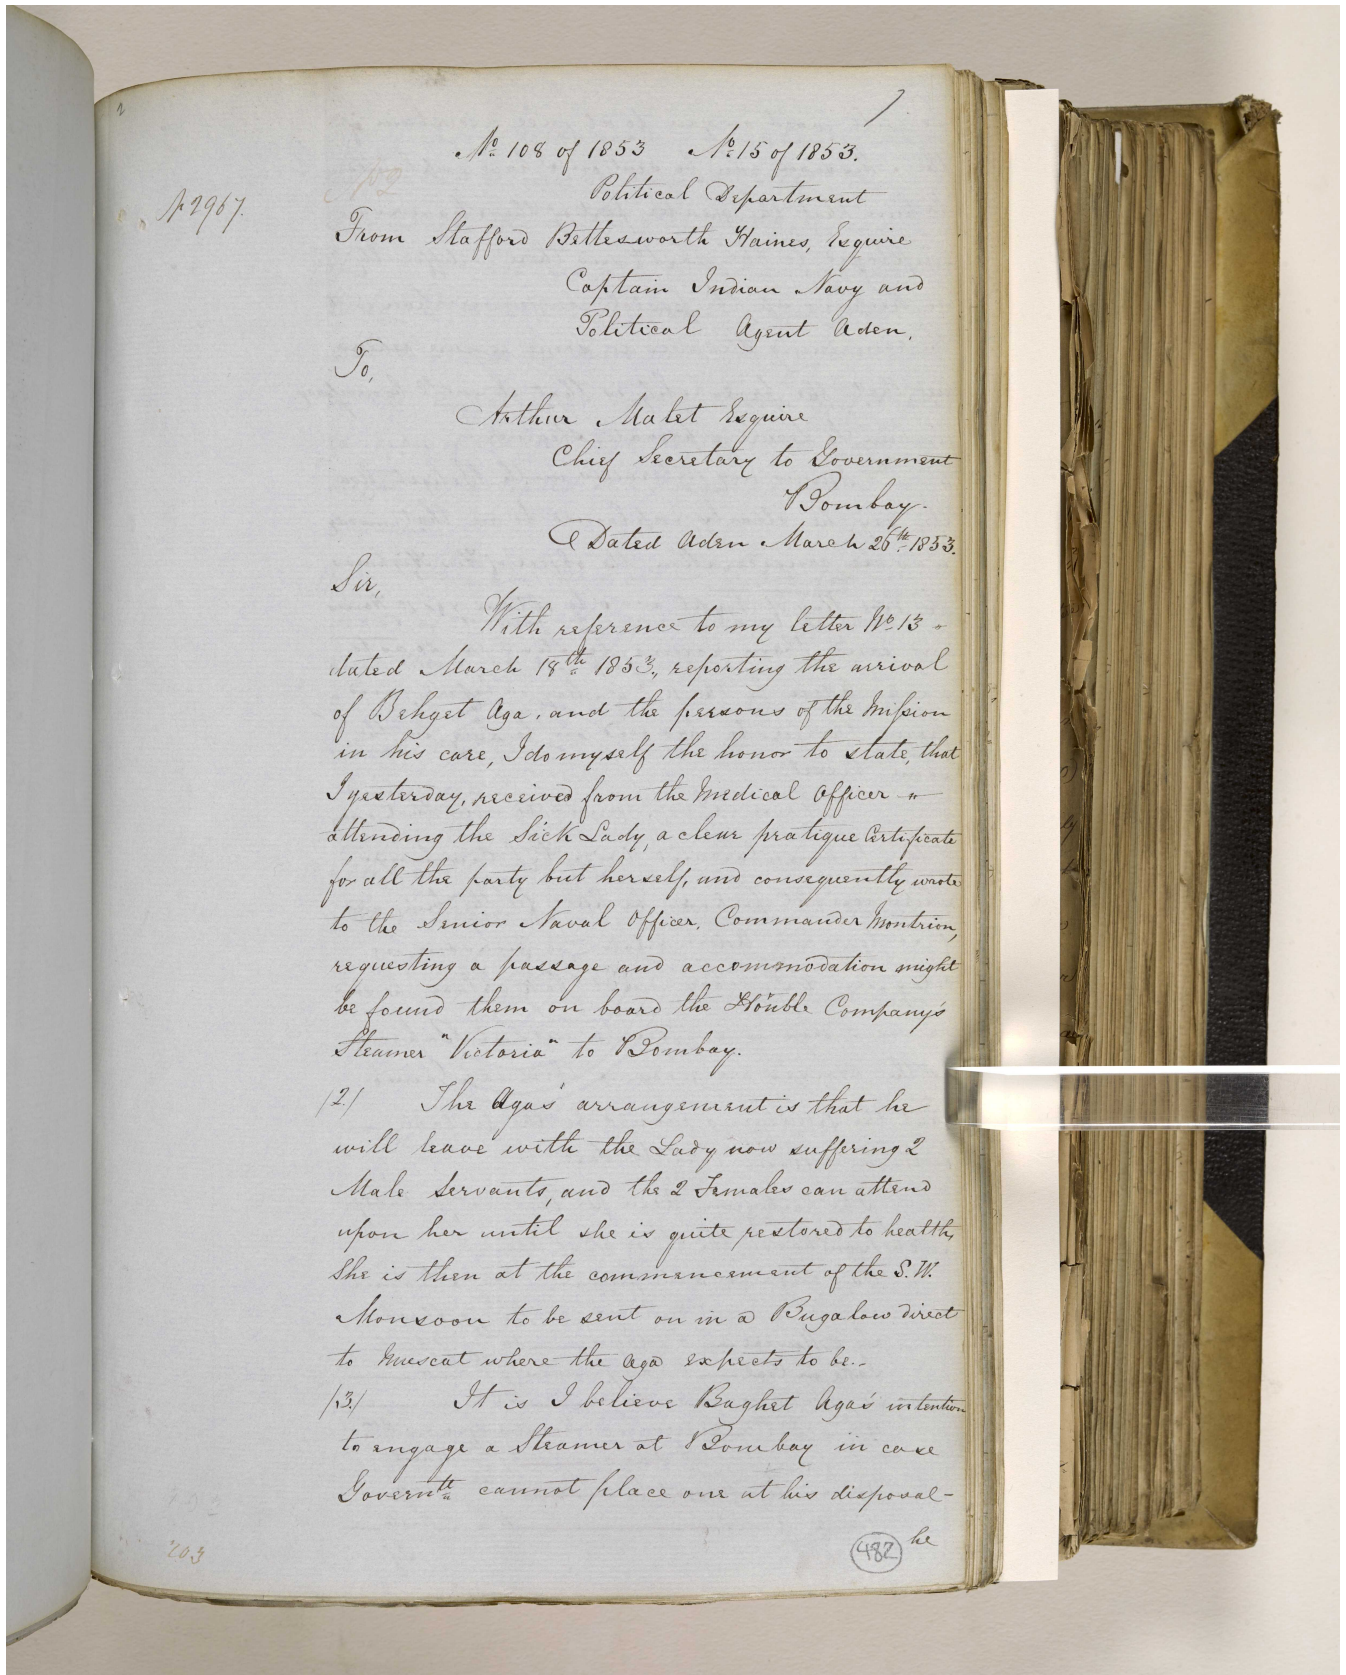 No. 108 of 1853 No. 15 of 1853.
No 2967.
Political Department
From Stafford Bettesworth Haines, Esquire
Captain Indian Navy and
Political Agent Aden.
To,
Arthur Malet Esquire
Chief Secretary to Government
Bombay.
Dated Aden March 26th 1853.
Sir,
With reference to my letter No. 13 "
dated March 18th 1853, reporting the arrival
of Behget Aga, and the persons of the Mission
in his care, I do myself the honor to state, that
I yesterday, received from the Medical Officer "
attending the Sick Lady, a clear pratique Certificate
for all the party but herself, and consequently wrote
to the Senior Naval Officer, Commander Montriou,
requesting a passage and accommodation might
be found them on board the Honble Company's
Steamer "Victoria" to Bombay.
/2./ The Aga's arrangement is that he
will leave with the Lady now suffering 2
Male Servants, and the 2 Females can attend
upon her until she is quite restored to health,
She is then at the commencement of the S.W.
Monsoon to be sent on in a Bugalow direct
to Muscat where the Aga expects to be.-
/3./ It is I believe Baghet Aga's intention
to engage a Steamer at Bombay in case
Governtt cannot place one at his disposal-
he
482
203